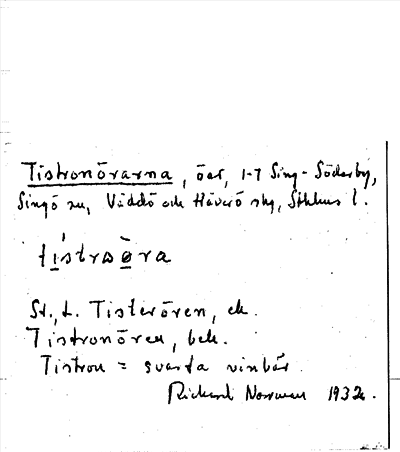 Tistronörarna, öar, 1-7 Sing-Söderby,
Singö sn, Väddö och Häverö skg, Sthlms l.
tístrωø̀ra
St., L. Tisterören, ek.
Tistronören, bek.
Tistron = svarta vinbär.
Rickard Norrman 1932.